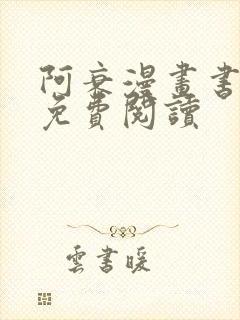 阿衰漫畫書
免費閱讀
雲書暖